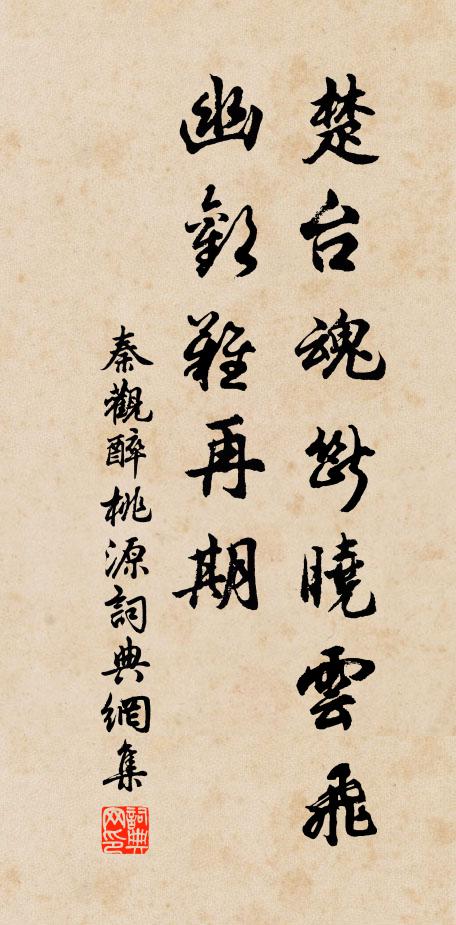 楚台魂斷曉雲飛
幽歡難再期
秦觀醉桃源詞典網集
詞典网印